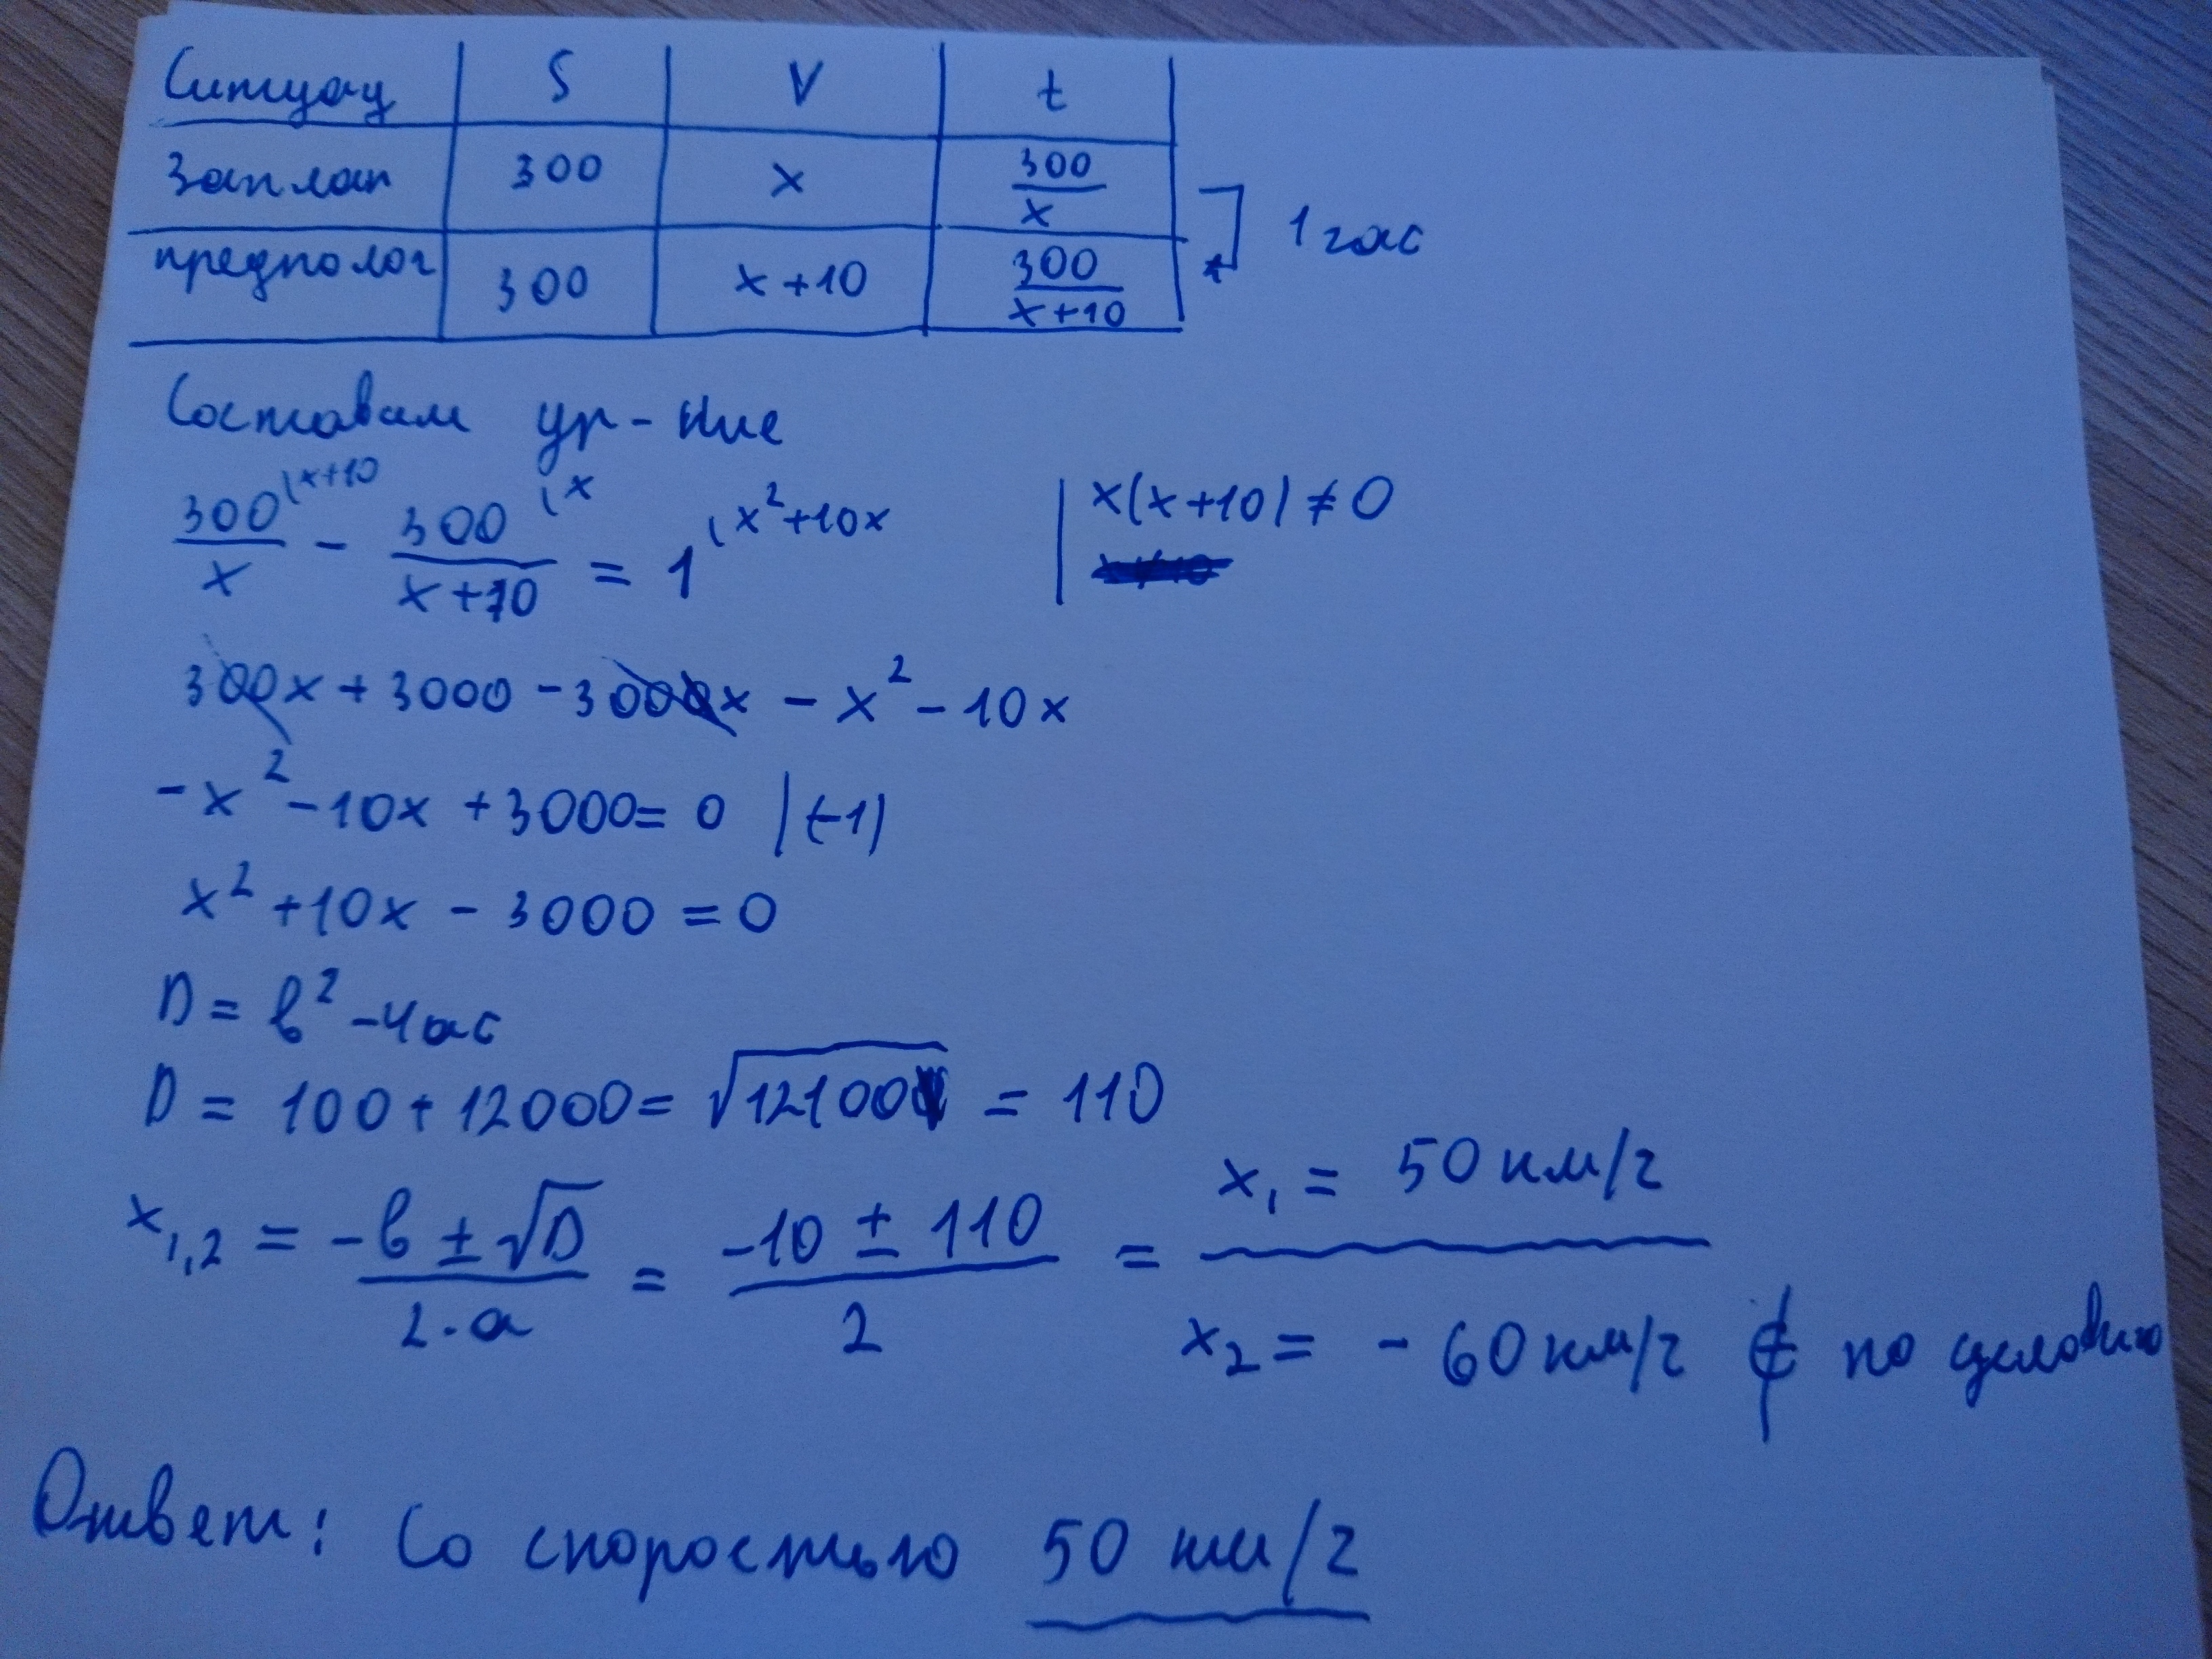 Ситуац S V t
Заплан 300 x 300/x
предполог 300 x+10 300/(x+10) 1 час
Составим ур-ние
300/x (x+10 - 300/(x+10) (x = 1 (x²+10x | x(x+10) ≠ 0
300x + 3000 - 300x - x² - 10x
-x² - 10x + 3000 = 0 |(-1)
x² + 10x - 3000 = 0
D = b² - 4ac
D = 100 + 12000 = √12100 = 110
x₁,₂ = (-b ± √D)/(2·a) = (-10 ± 110)/2 = x₁ = 50 км/ч
x₂ = -60 км/ч ∉ по условию
Ответ: Со скоростью 50 км/ч